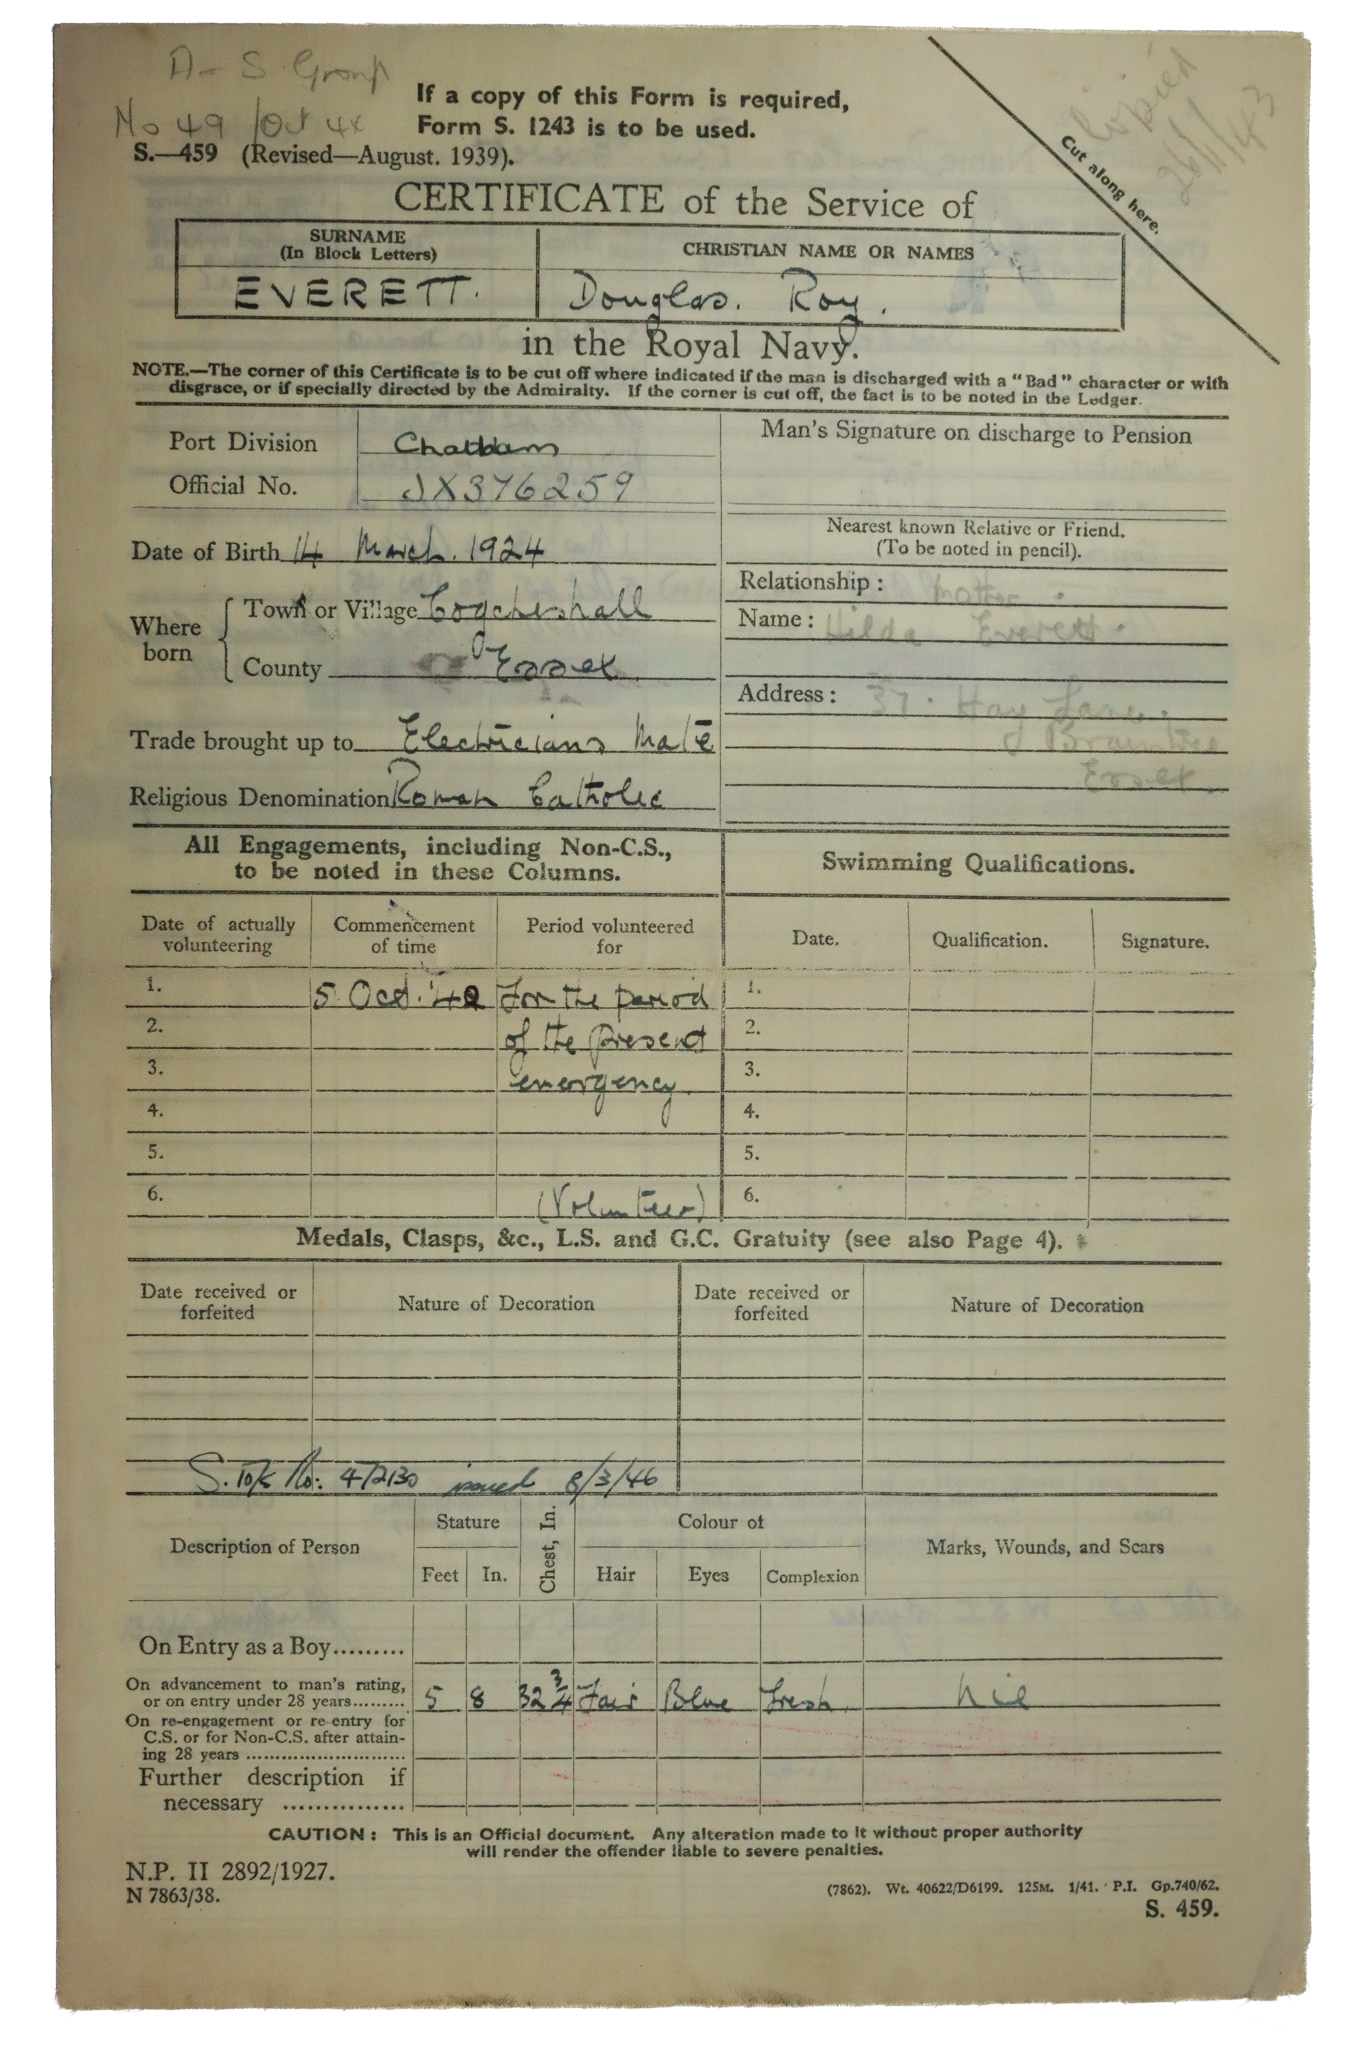 A – S Group
No 49 / Oct 44
If a copy of this Form is required,
Form S. 1243 is to be used.
S.—459 (Revised—August. 1939).
Copied
26/1/43
Cut along here.
CERTIFICATE of the Service of
SURNAME
(In Block Letters)
CHRISTIAN NAME OR NAMES
EVERETT.
Douglas. Roy.
in the Royal Navy.
NOTE.—The corner of this Certificate is to be cut off where indicated if the man is discharged with a "Bad" character or with
disgrace, or if specially directed by the Admiralty. If the corner is cut off, the fact is to be noted in the Ledger.
Port Division Chatham
Official No. JX376259
Man's Signature on discharge to Pension
Date of Birth 14 March. 1924
Where born
Town or Village Coggeshall
County Essex
Trade brought up to Electricians Mate
Religious Denomination Roman Catholic
Nearest known Relative or Friend.
(To be noted in pencil).
Relationship : Mother.
Name : Hilda Everett.
Address : 37. Hay Lane.
Braintree
Essex.
All Engagements, including Non-C.S.,
to be noted in these Columns.
Swimming Qualifications.
Date of actually
volunteering
Commencement
of time
Period volunteered
for
Date.
Qualification.
Signature.
1. 5 Oct. '42 For the period 1.
2. of the present 2.
3. emergency 3.
4. 4.
5. 5.
6. (Volunteer) 6.
Medals, Clasps, &c., L.S. and G.C. Gratuity (see also Page 4).
Date received or
forfeited
Nature of Decoration
Date received or
forfeited
Nature of Decoration
No: 4/2130 issued 8/3/46
Description of Person
Stature
Feet
In.
Chest, In.
Colour of
Hair
Eyes
Complexion
Marks, Wounds, and Scars
On Entry as a Boy.........
On advancement to man's rating,
or on entry under 28 years......... 5 8 32 3/4 Fair Blue Fresh Nil
On re-engagement or re-entry for
C.S. or for Non-C.S. after attain-
ing 28 years ...........................
Further description if
necessary ...............
CAUTION : This is an Official document. Any alteration made to it without proper authority
will render the offender liable to severe penalties.
N.P. II 2892/1927.
N 7863/38.
(7862). Wt. 40622/D6199. 125M. 1/41. P.I. Gp.740/62.
S. 459.